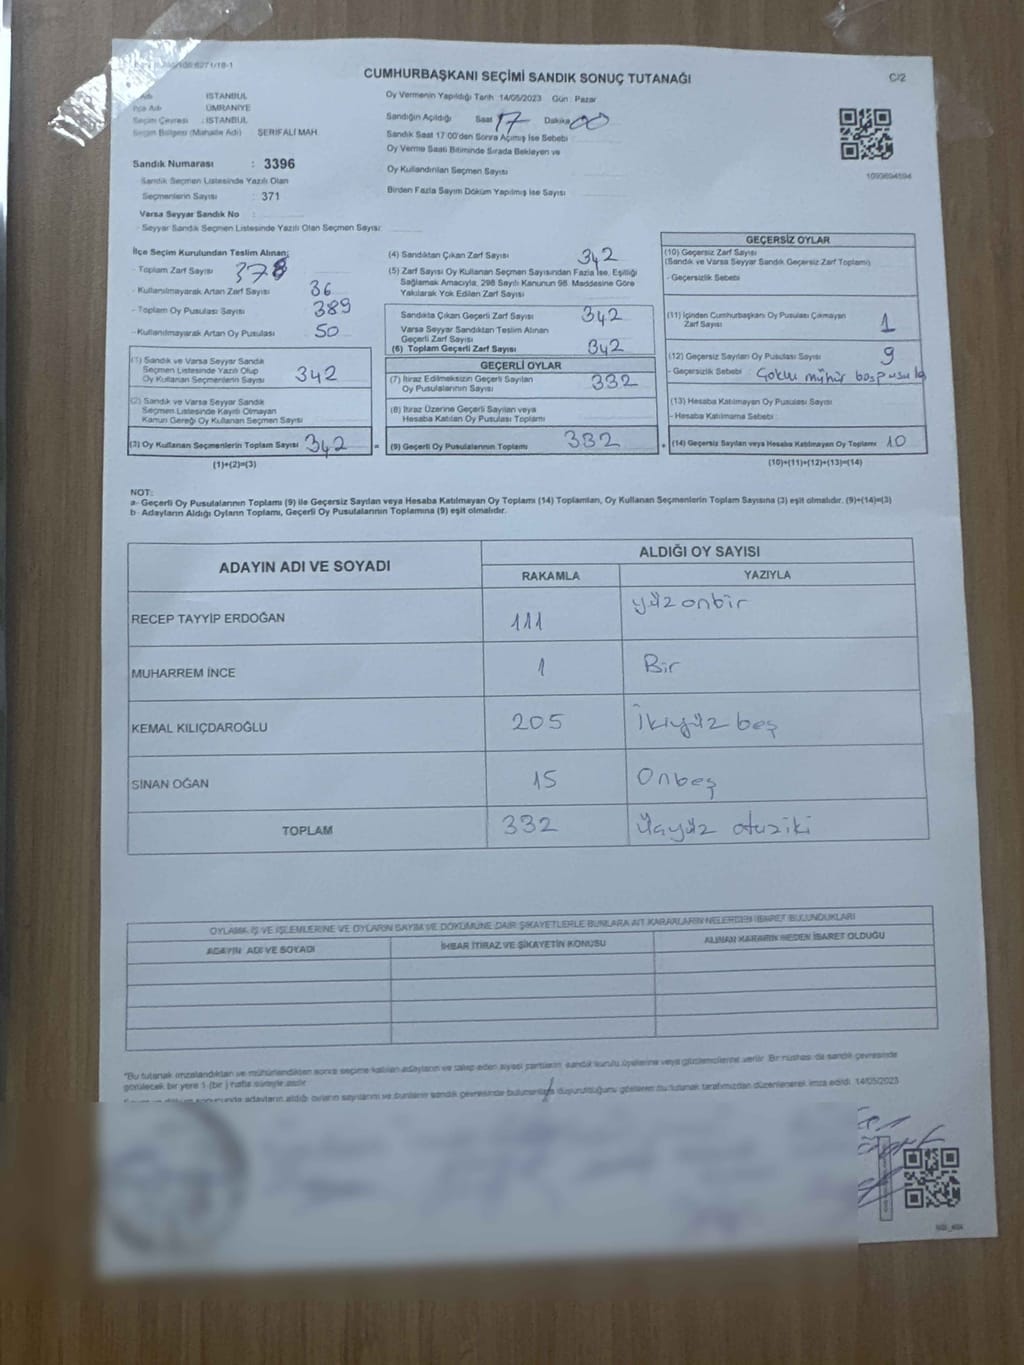 CUMHURBAŞKANI SEÇİMİ SANDIK SONUÇ TUTANAĞI
C/2
İSTANBUL
İlçe Adı ÜMRANİYE
Seçim Çevresi : İSTANBUL
Seçim Bölgesi (Mahalle Adı) ŞERİFALİ MAH.
Sandık Numarası : 3396
Sandık Seçmen Listesinde Yazılı Olan
Seçmenlerin Sayısı : 371
Varsa Seyyar Sandık No :
- Seyyar Sandık Seçmen Listesinde Yazılı Olan Seçmen Sayısı:
Oy Vermenin Yapıldığı Tarih 14/05/2023 Gün : Pazar
Sandığın Açıldığı Saat 17 Dakika 00
Sandık Saat 17:00'den Sonra Açımış İse Sebebi :
Oy Verme Saati Bitiminde Sırada Bekleyen ve
Oy Kullandırılan Seçmen Sayısı
Birden Fazla Sayım Döküm Yapılmış İse Sayısı
1099694594
İlçe Seçim Kurulundan Teslim Alınan;
- Toplam Zarf Sayısı 378
- Kullanılmayarak Artan Zarf Sayısı 36
- Toplam Oy Pusulası Sayısı 389
- Kullanılmayarak Artan Oy Pusulası 50
(1) Sandık ve Varsa Seyyar Sandık
Seçmen Listesinde Yazılı Olup
Oy Kullanan Seçmenlerin Sayısı 342
(2) Sandık ve Varsa Seyyar Sandık
Seçmen Listesinde Kayıtlı Olmayan
Kanun Gereği Oy Kullanan Seçmen Sayısı
(3) Oy Kullanan Seçmenlerin Toplam Sayısı 342 =
(1)+(2)=(3)
(4) Sandıktan Çıkan Zarf Sayısı 342
(5) Zarf Sayısı Oy Kullanan Seçmen Sayısından Fazla İse, Eşitliği
Sağlamak Amacıyla, 298 Sayılı Kanunun 98. Maddesine Göre
Yakılarak Yok Edilen Zarf Sayısı
Sandıkta Çıkan Geçerli Zarf Sayısı 342
Varsa Seyyar Sandıktan Teslim Alınan
Geçerli Zarf Sayısı
(6) Toplam Geçerli Zarf Sayısı 342
GEÇERLİ OYLAR
(7) İtiraz Edilmeksizin Geçerli Sayılan
Oy Pusulalarının Sayısı 332
(8) İtiraz Üzerine Geçerli Sayılan veya
Hesaba Katılan Oy Pusulası Toplamı
(9) Geçerli Oy Pusulalarının Toplamı 332 +
GEÇERSİZ OYLAR
(10) Geçersiz Zarf Sayısı
(Sandık ve Varsa Seyyar Sandık Geçersiz Zarf Toplamı)
- Geçersizlik Sebebi
(11) İçinden Cumhurbaşkanı Oy Pusulası Çıkmayan
Zarf Sayısı 1
(12) Geçersiz Sayılan Oy Pusulası Sayısı 9
- Geçersizlik Sebebi : Çoklu mühür boş pusula
(13) Hesaba Katılmayan Oy Pusulası Sayısı
- Hesaba Katılmama Sebebi :
(14) Geçersiz Sayılan veya Hesaba Katılmayan Oy Toplamı 10
(10)+(11)+(12)+(13)=(14)
NOT:
a- Geçerli Oy Pusulalarının Toplamı (9) ile Geçersiz Sayılan veya Hesaba Katılmayan Oy Toplamı (14) Toplamları, Oy Kullanan Seçmenlerin Toplam Sayısına (3) eşit olmalıdır. (9)+(14)=(3)
b- Adayların Aldığı Oyların Toplamı, Geçerli Oy Pusulalarının Toplamına (9) eşit olmalıdır.
ADAYIN ADI VE SOYADI
ALDIĞI OY SAYISI
RAKAMLA YAZIYLA
RECEP TAYYİP ERDOĞAN 111 yüz onbir
MUHARREM İNCE 1 Bir
KEMAL KILIÇDAROĞLU 205 İkiyüz beş
SİNAN OĞAN 15 Onbeş
TOPLAM 332 üçyüz otuziki
OYLAMA İŞ VE İŞLEMLERİNE VE OYLARIN SAYIM VE DÖKÜMÜNE DAİR ŞİKAYETLERLE BUNLARA AİT KARARLARIN NELERDEN İBARET BULUNDUKLARI
ADAYIN ADI VE SOYADI
İHBAR İTİRAZ VE ŞİKAYETİN KONUSU
ALINAN KARARIN NEDEN İBARET OLDUĞU
"Bu tutanak imzalandıktan ve mühürlendikten sonra seçime katılan adayların ve talep eden siyasi partilerin sandık kurulu üyelerine veya gözlemcilerine verilir. Bir nüshası da sandık çevresinde
görülecek bir yere 1 (bir) hafta süreyle asılır.
adayların aldığı oyların sayılarını ve bunların sandık çevresinde bulunanlara duyurulduğunu gösteren bu tutanak tarafımızdan düzenlenerek imza edildi. 14/05/2023